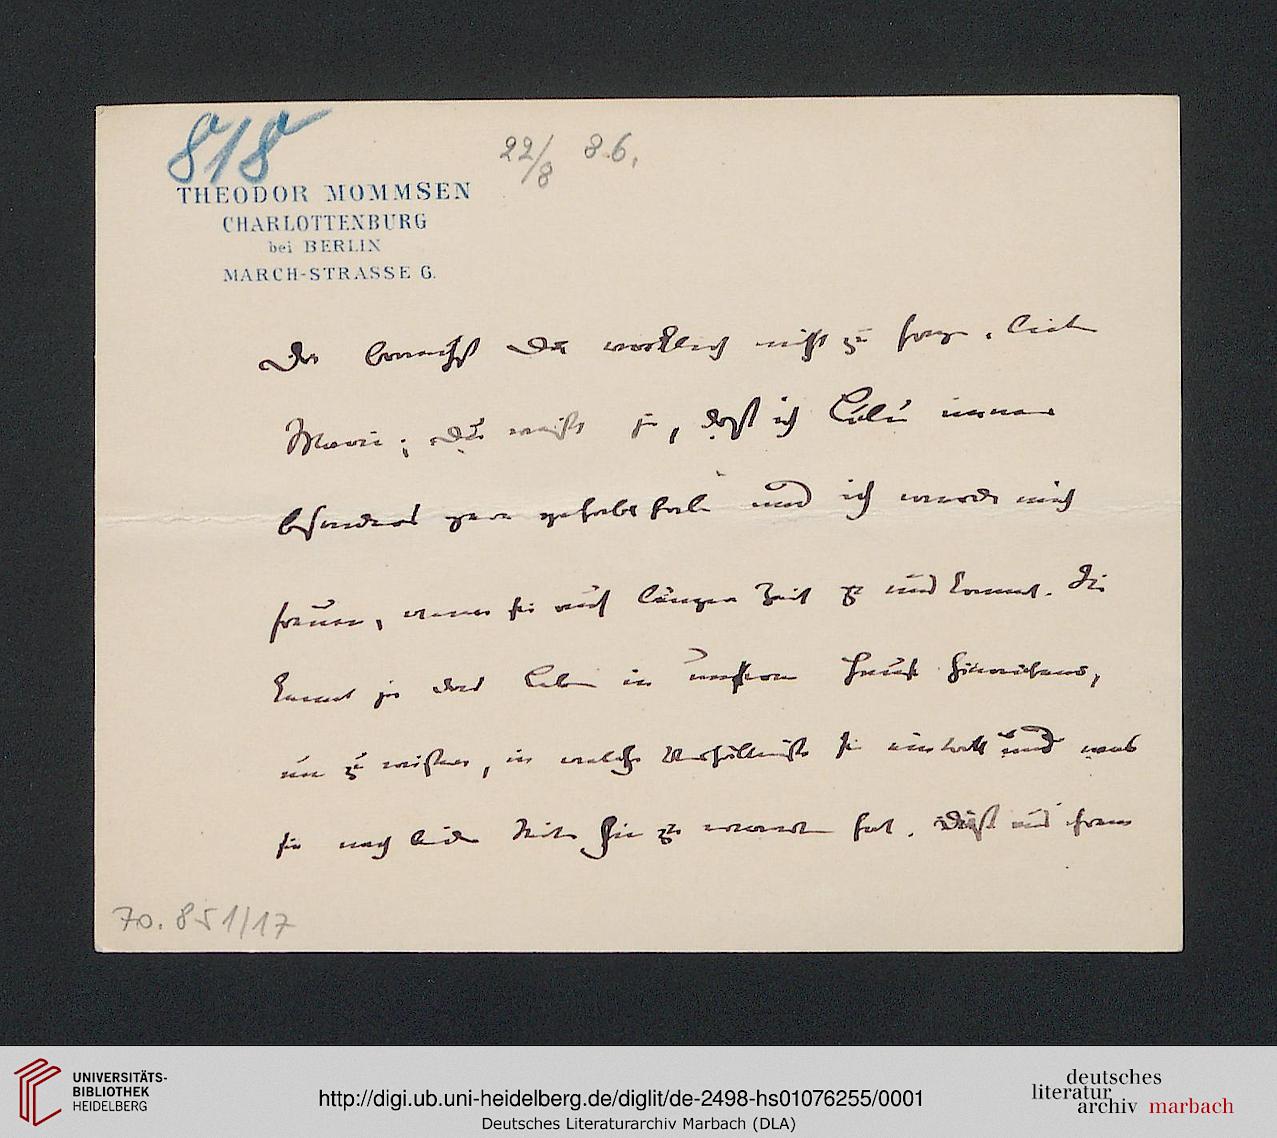 818
22/8 86.
THEODOR MOMMSEN
CHARLOTTENBURG
bei BERLIN
MARCH-STRASSE 6.
Da brauchst Du wirklich nicht zu fragen, liebe
Marie; Du weißt ja, daß ich Lili immer
besonders gern gehabt habe und ich werde mich
freuen, wenn sie auf länger Zeit zu uns kommt. Sie
kennt ja das Leben in unserem Hause hinreichend,
um zu wissen, in welche Verhältnisse sie eintritt und was
sie nach beiden Seiten hin zu erwarten hat.
70.851/17
UNIVERSITÄTS-
BIBLIOTHEK
HEIDELBERG
http://digi.ub.uni-heidelberg.de/diglit/de-2498-hs01076255/0001
Deutsches Literaturarchiv Marbach (DLA)
deutsches
literatur
archiv marbach